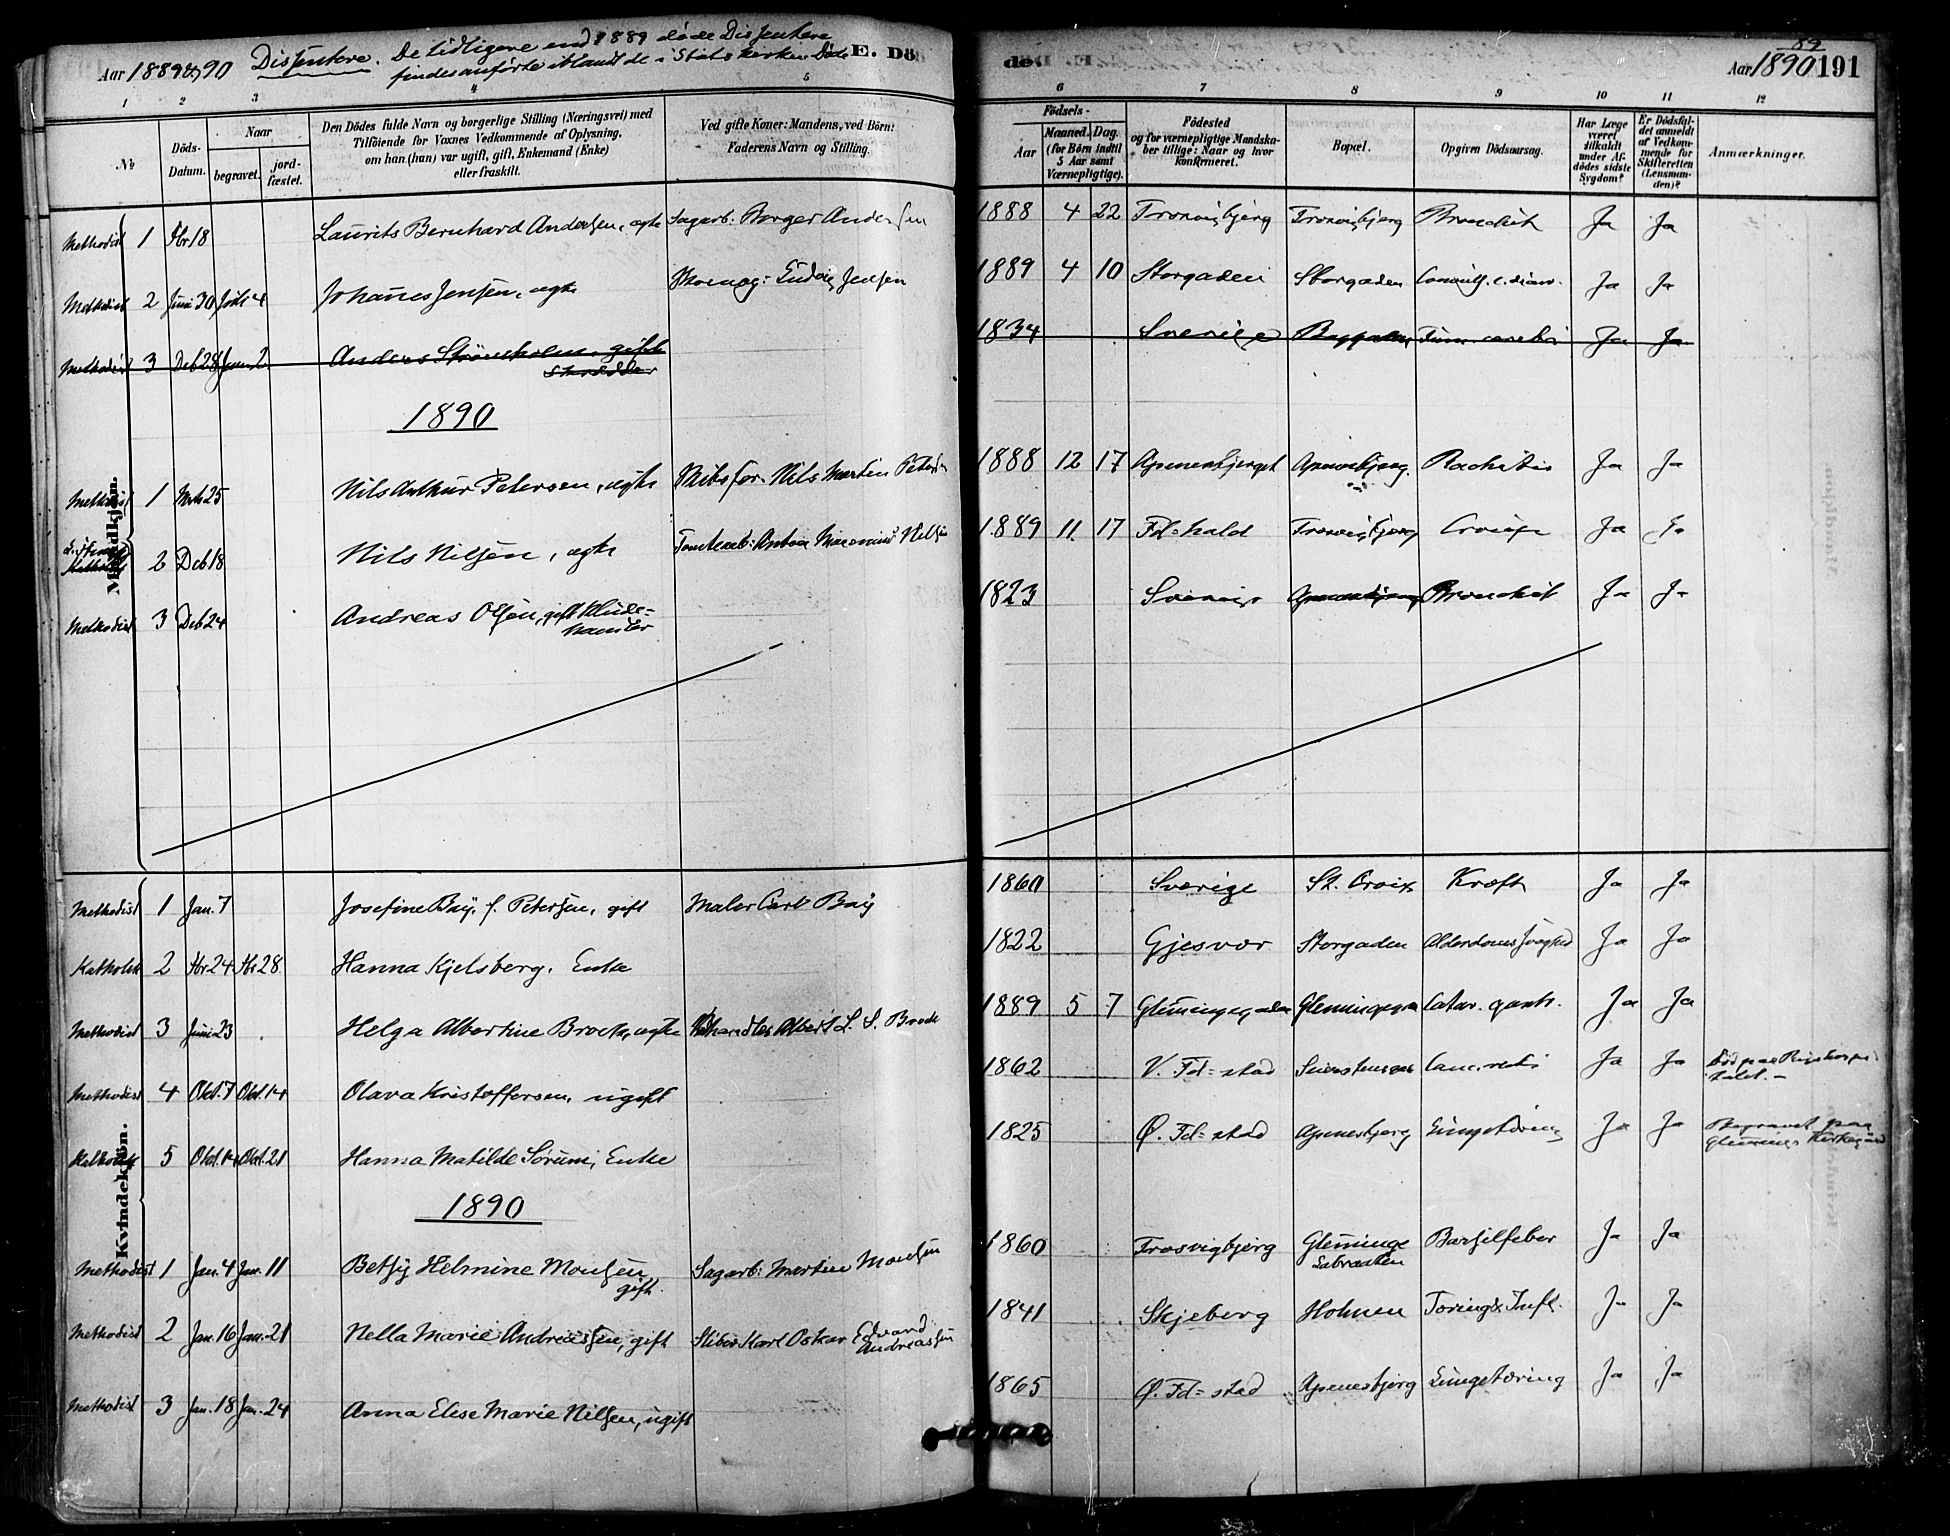 Aar 1889 & 90 Dissentere. De tidligere end 1889 døde Dissentere
findes anførte iblandt de i Statskirken Døde
E. Dö
de
89
Aar 1890 191
1 2 3 4 5 6 7 8 9 10 11 12
No
Döds-Datum.
Naar
begravet.
jord-fæstet.
Den Dödes fulde Navn og borgerlige Stilling (Næringsvei) med
Tilföiende for Voxnes Vedkommende af Oplysning,
om han (hun) var ugift, gift, Enkemand (Enke)
eller fraskilt.
Ved gifte Koner: Mandens, ved Börn:
Faderens Navn og Stilling.
Födsels-
Aar
Maaned. Dag.
(for Börn indtil
5 Aar samt
Værnepligtige).
Födested
og for værnepligtige Mandska-
ber tillige: Naar og hvor
konfirmeret.
Bopæl.
Opgiven Dödsaarsag.
Har Læge
været
tilkaldt
under Af-
dödes sidste
Sygdom?
Er Dödsfal-
det anmeldt
af Vedkom-
mende for
Skifteretten
(Lensman-
den)?
Anmærkninger.
Mandkjøn.
Methodist 1 Fbr 18 Laurits Bernhard Andersen, ægte Sagarb: Borger Andersen 1888 4 22 Trosvigbjerg Trosvigbjerg Bronchit Ja Ja
Methodist 2 Juni 30 Juli 4 Johannes Jensen, ægte Ludvig Jensen 1889 4 10 Storgaden Storgaden Ja Ja
Methodist 3 Deb 28 Jan. 2 Anders Strömholm, gift 1834 Sverige Ja Ja
skrædder
1890
Methodist 1 Mrts 25 Nils Arthur Petersen, ægte Skibsfør. Nils Martin Petersen 1888 12 17 Apenesbjerget Apenesbjerg. Rachitis Ja Ja
2 Deb 18 Nils Nilsen, ægte Tomtearb: Anton Nilsen 1889 11 17 Fd=hald Trosvigbjerg Croup Ja Ja
Methodist 3 Deb 24 Andreas Olsen, gift Klude-
handler 1823 Sverige Apenesbjerg Bronchit Ja Ja
Kvindekjøn.
Methodist 1 Jan. 7 Josefine Bay, f. Petersen, gift Maler Carl Bay 1860 Sverige St. Croix Kræft Ja Ja
Katholik 2 Fbr 24 Fbr 28 Hanna Kjelsberg, Enke 1822 Gjesvær Storgaden Alderdomssvaghed Ja Ja
Methodist 3 Juni 23 Helga Albertine Brock, ægte Albert L. S. Brock 1889 5 7 Glemmingegaden Glemmingeg. Catar. gastr. Ja Ja
Methodist 4 Okt. 7 Okt. 14 Olava Kristoffersen, ugift 1862 V. Fd=stad Ja Ja Død paa Rigshospi-
talet. –
Katholik 5 Okt. 14 Okt. 21 Hanna Matilde Sørum, Enke 1825 Ø. Fd=stad Apenesbjerg Lungetæring Ja Ja Begravet paa
Glemmings Kirkegaard
1890
Methodist 1 Jan. 4 Jan. 11 Betsy Helmine Monsen
gift. Sagarb: Martin Monsen 1860 Trosvigbjerg Glemminge
Labraaten Barselfeber Ja Ja
Methodist 2 Jan. 16 Jan. 21 Nella Marie Andreassen, gift Karl Oskar Edvard
Andreassen 1841 Skjeberg Holmen Tæring & Infl. Ja Ja
Methodist 3 Jan. 18 Jan. 24 Anna Elise Marie Nilsen, ugift 1865 Ø. Fd=stad Apenesbjerg Lungetæring Ja Ja